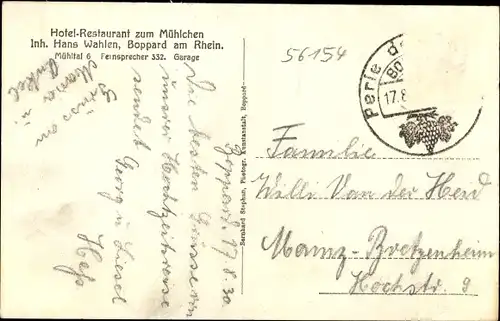 Hotel-Restaurant zum Mühlchen
Inh. Hans Wahlen, Boppard am Rhein.
Mühltal 6 Fernsprecher 332. Garage
Boppard, 17.8.30
Die besten Grüsse von
unsrer Hochzeitsreise
sendet
Georg u. Liesel
Hess
Maria u.
Onkel
Bernhard Stephan, Photogr. Kunstanstalt, Boppard
56154
Perle d
BO
17.8
Familie
Willi Van der Heid
Mainz-Bretzenheim
Hochstr. 9